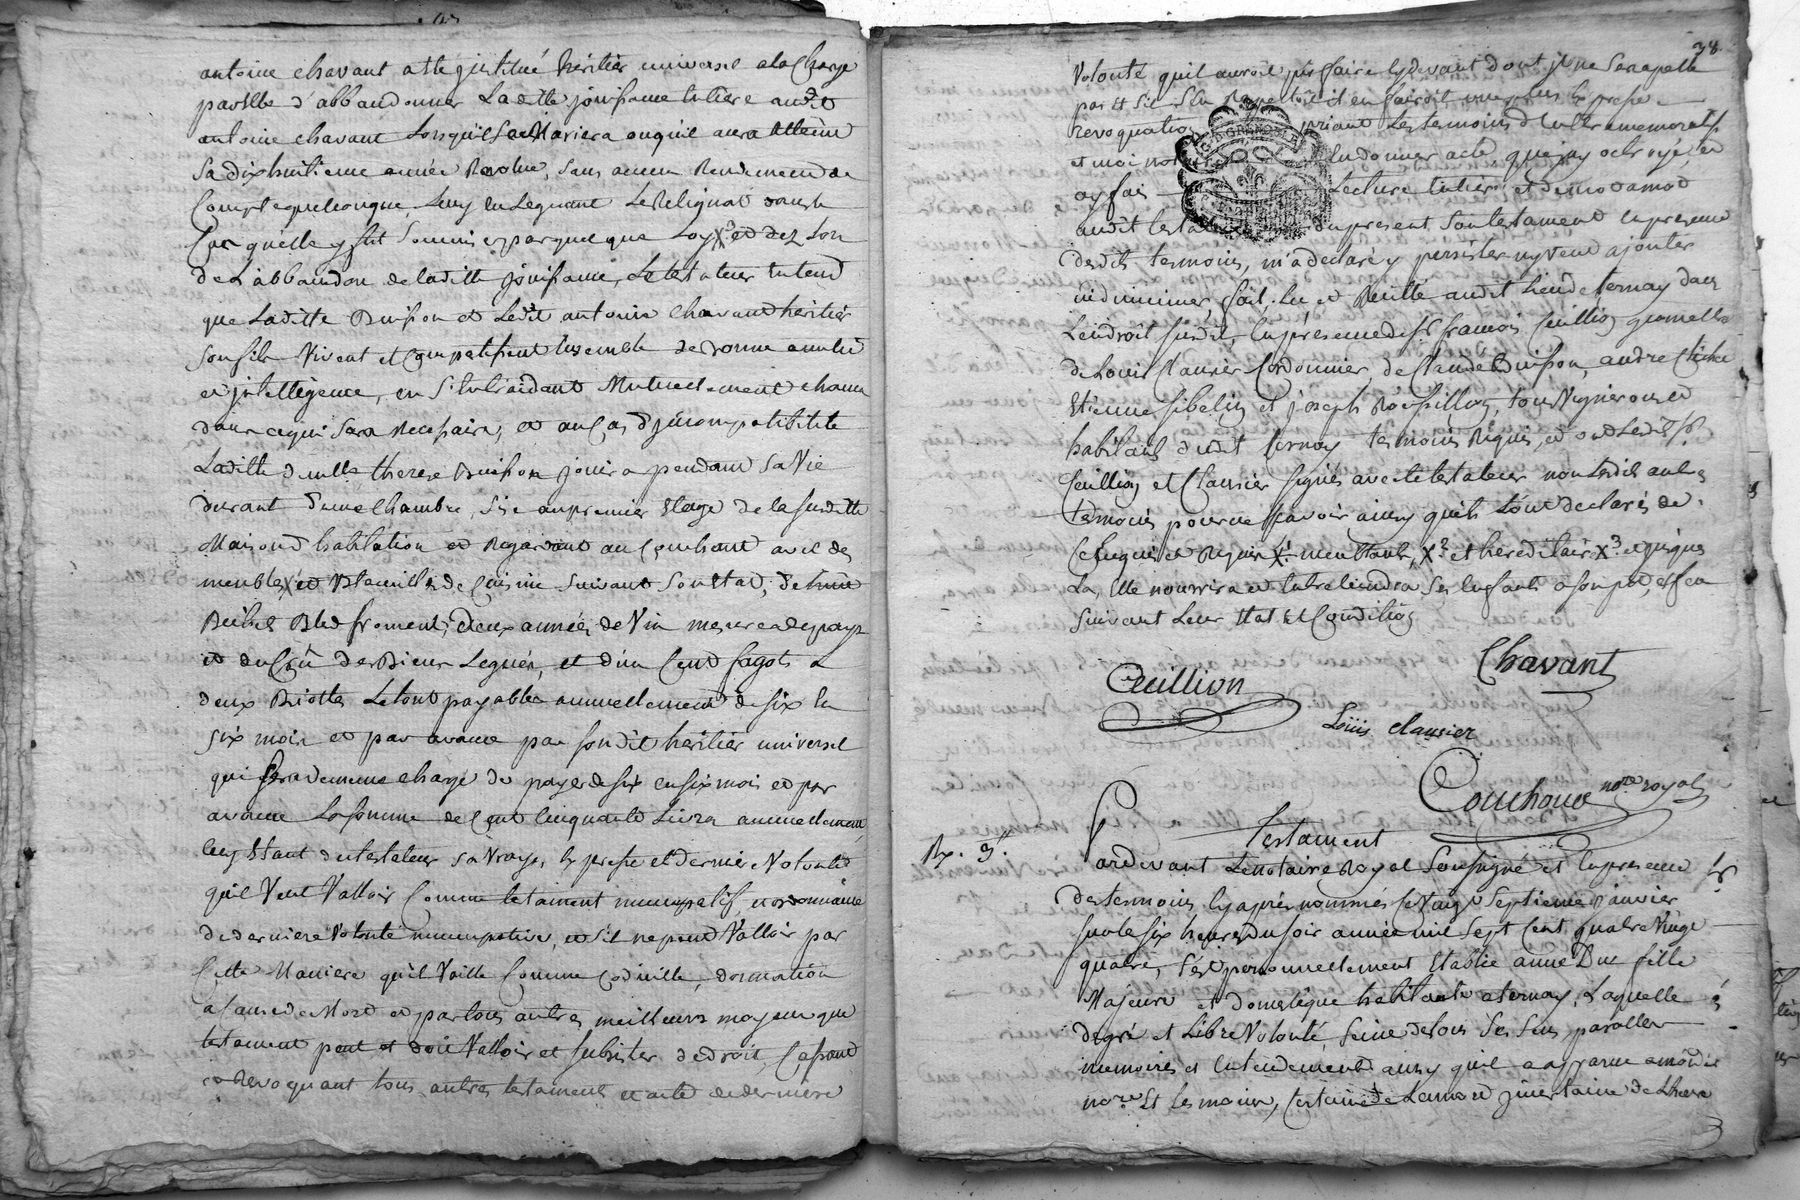 antoine chavant a tte institué héritier universel a la Charge
par Elle d'abbandonner Laditte jouissance entiere audit
antoine chavant Lorsquil se Mariera ou quil aura atteint
Sa dix huitieme année Revolue, Sans aucun Rendement de
Compte quelconque, Luy en Leguant Le Reliquat dans le
Cas qu'elle y fut Soumise par quelque Loy X3 et dez Lors
de L'abbandon de laditte jouissance, Le testateur entend
que Laditte Buisson et Ledit antoine Chavant héritier
son fils Vivent et Compatissent Ensemble de bonne amitié
et intellegence, en S'entr'aidant Mutuellement chacun
dans ce qui Sera Necessaire, et au Cas d'jncompatibilité
Laditte therese Buisson jouira pendant Sa Vie
durant d'une Chambre, Sise au premier Etage de la susditte
Maison d'habitation et Regardant au Couchant avec des
meubles X et Ustancilles de Cuisine Suivant Son Etat, de
Bichets Bled froment, deux années de Vin mesure de pays
et du Crû de Bieux Legués, et d'un Cent fagots a
deux Riottes Le tout payable annuellement de six en
six mois et par avance par Sondit héritier universel
qui Sera de meme chargé de payer de six en six mois et par
avance La somme de Cent Cinquante Livres annuellement
Cecy Etant du testateur sa Vraye, Expresse et derniere Volonté
quil Veut Valloir Comme testament nuncupatif, et ordonnance
de derniere Volonté nuncupative, et S'il ne peut Valloir par
Cette Maniere quil Vaille Comme Codicille, donnation
a Cause de Mort et par tous autres meilleurs moyens que
testament peut et doit Valloir et subsister de droit, Cassant
et Revoquant tous autres testaments et acte de derniere
38
Volonté quil auroit pû faire Cydevant dont jl ne Se rapelle
par Et s'il S'en Rapelloit il en fairoit une plus Expresse
revoquation priant Les temoins d'En Etre memoratifs
et moi not Lui donner acte, que j'ay octroyé, et
ay fai Lecture Entiere et de mot a mot
audit testa du present Son testament En presence
desdits temoins, m'a declaré y persister ny Veut ajouter
ni diminuer, fait Lu et Recitté audit Lieu de ternay dans
L'endroit susdit, En presence de sr francois Cuillion
de Louis Clausier Cordonnier, de Claude Buisson, andre
Etienne Gibelin et joseph Roussillon, tous Vignerons et
habitants dudit ternay temoins Requis, et ont Lesdits sr
Cuillion et Clausier signés avec le testateur non Lesdits autres
temoins pour ne sçavoir ainsy quils L'ont declarés de
Ce Enquis et Requis X1 meublants, X2 et hereditaire X3 et jusques
La, Elle nourrira et Entretiendra Ses Enfants a son pot, et feu
Suivant Leur Etat Et Condition
Chavant
Cuillion
Loüis clausier
Couchoud nore royal
Testament
Pardevant Le Notaire Royal Soussigné et En presence
des temoins Cy après nommés Ce Vingt Septieme janvier
sur les six heures du soir année mil Sept Cent quatre Vingt
quatre, s'est personnellement Etablie anne Duc fille
Majeure et domestique habitante a ternay, Laquelle
de gré et Libre Volonté, Saine de tous Ses Sens, parolle
memoire et Entendement ainsy quil a apparu a moi dit
nore Et temoins, Certaine de La mort jncertaine de L'heure